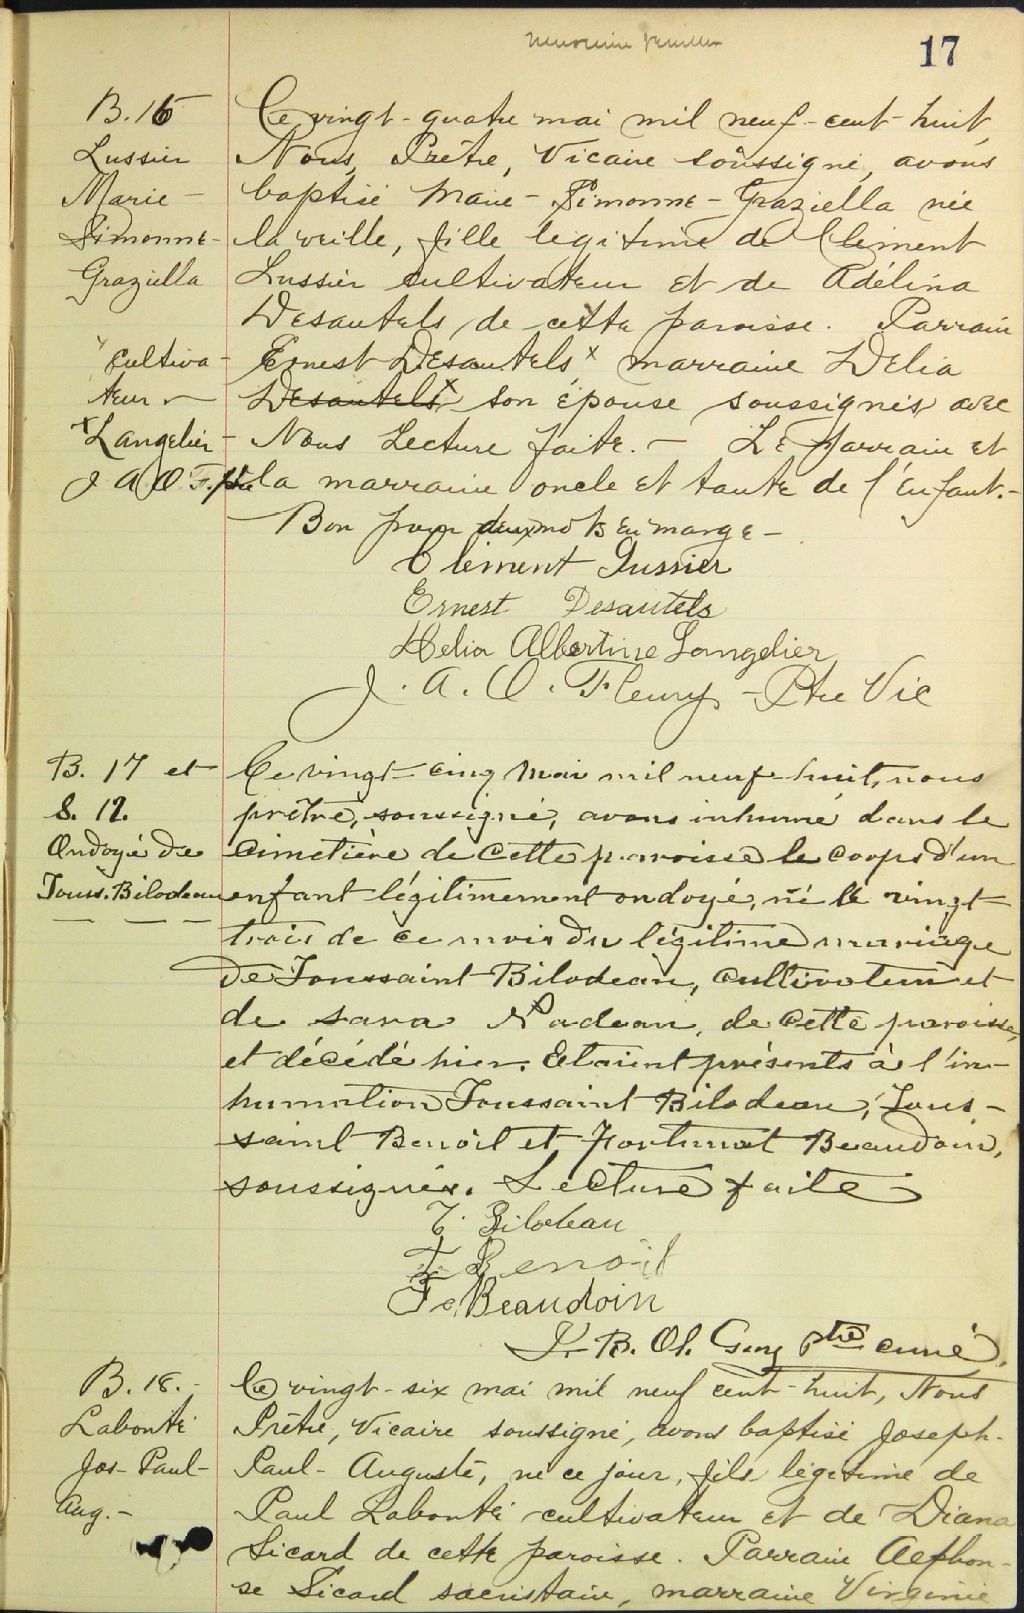 17
B. 16
Lussier
Marie -
Simonne -
Graziella
Ce vingt-quatre mai mil neuf-cent-huit,
Nous, Prêtre, Vicaire soussigné, avons
baptisé Marie-Simonne-Graziella née
la veille, fille légitime de Clément
Lussier cultivateur et de Adélina
Desautels de cette paroisse. Parrain
Ernest Desautels x marraine Délia
Desautels x son épouse soussignés avec
Nous Lecture faite. - Le parrain et
la marraine oncle et tante de l'enfant. -
Bon pour deux mots en marge -
cultiva -
teur -
x Langelier -
J A O F. ptre
Clément Lussier
Ernest Desautels
Délia Albertine Langelier
J. A. O. Fleury - Ptre Vic
B. 17 et
S. 12.
Ondoyé de
Touss. Bilodeau
Ce vingt-cinq mai mil neuf-huit, nous
prêtre, soussigné, avons inhumé dans le
cimetière de cette paroisse le corps d'un
enfant légitimement ondoyé, né le vingt
trois de ce mois du légitime mariage
de Toussaint Bilodeau, cultivateur et
de Sara Nadeau, de cette paroisse,
et décédé hier. Etaient présents à l'in-
humation Toussaint Bilodeau, Tous-
saint Benoit et Fortunat Beaudoin,
soussignés. Lecture faite
T. Bilodeau
T. Benoit
F. Beaudoin
Ptre curé.
B. 18. -
Labonté
Jos-Paul-
Aug. -
Ce vingt-six mai mil neuf cent-huit, Nous
Prêtre, Vicaire soussigné, avons baptisé Joseph-
Paul-Auguste, né ce jour, fils légitime de
Paul Labonté cultivateur et de Diana
Sicard de cette paroisse. Parrain Alphon-
se Sicard sacristain, marraine Virginie